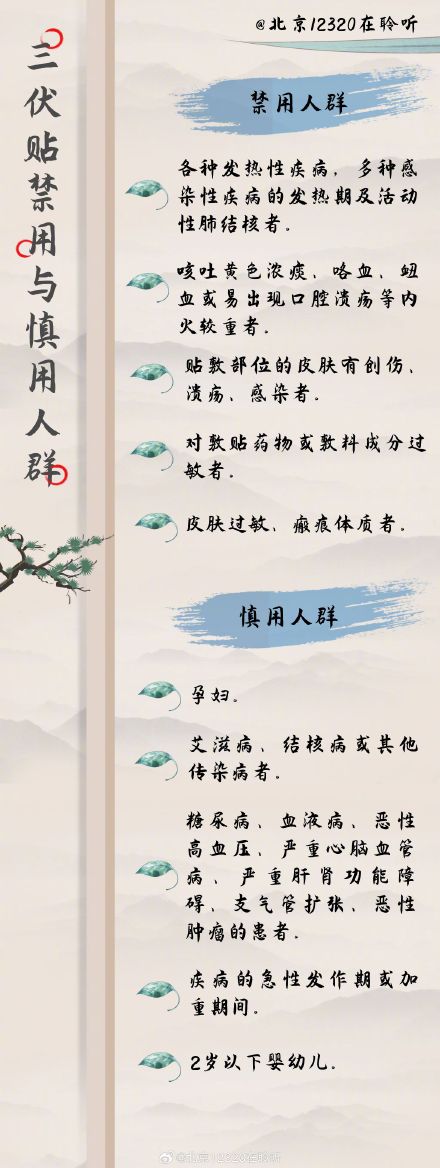 @北京12320在聆听
三伏贴禁用与慎用人群
禁用人群
各种发热性疾病，多种感
染性疾病的发热期及活动
性肺结核者。
咳吐黄色浓痰、咯血、衄
血或易出现口腔溃疡等内
火较重者。
贴敷部位的皮肤有创伤、
溃疡、感染者。
对敷贴药物或敷料成分过
敏者。
皮肤过敏、瘢痕体质者。
慎用人群
孕妇。
艾滋病、结核病或其他
传染病者。
糖尿病、血液病、恶性
高血压、严重心脑血管
病、严重肝肾功能障
碍、支气管扩张、恶性
肿瘤的患者。
疾病的急性发作期或加
重期间。
2岁以下婴幼儿。
@北京12320在聆听